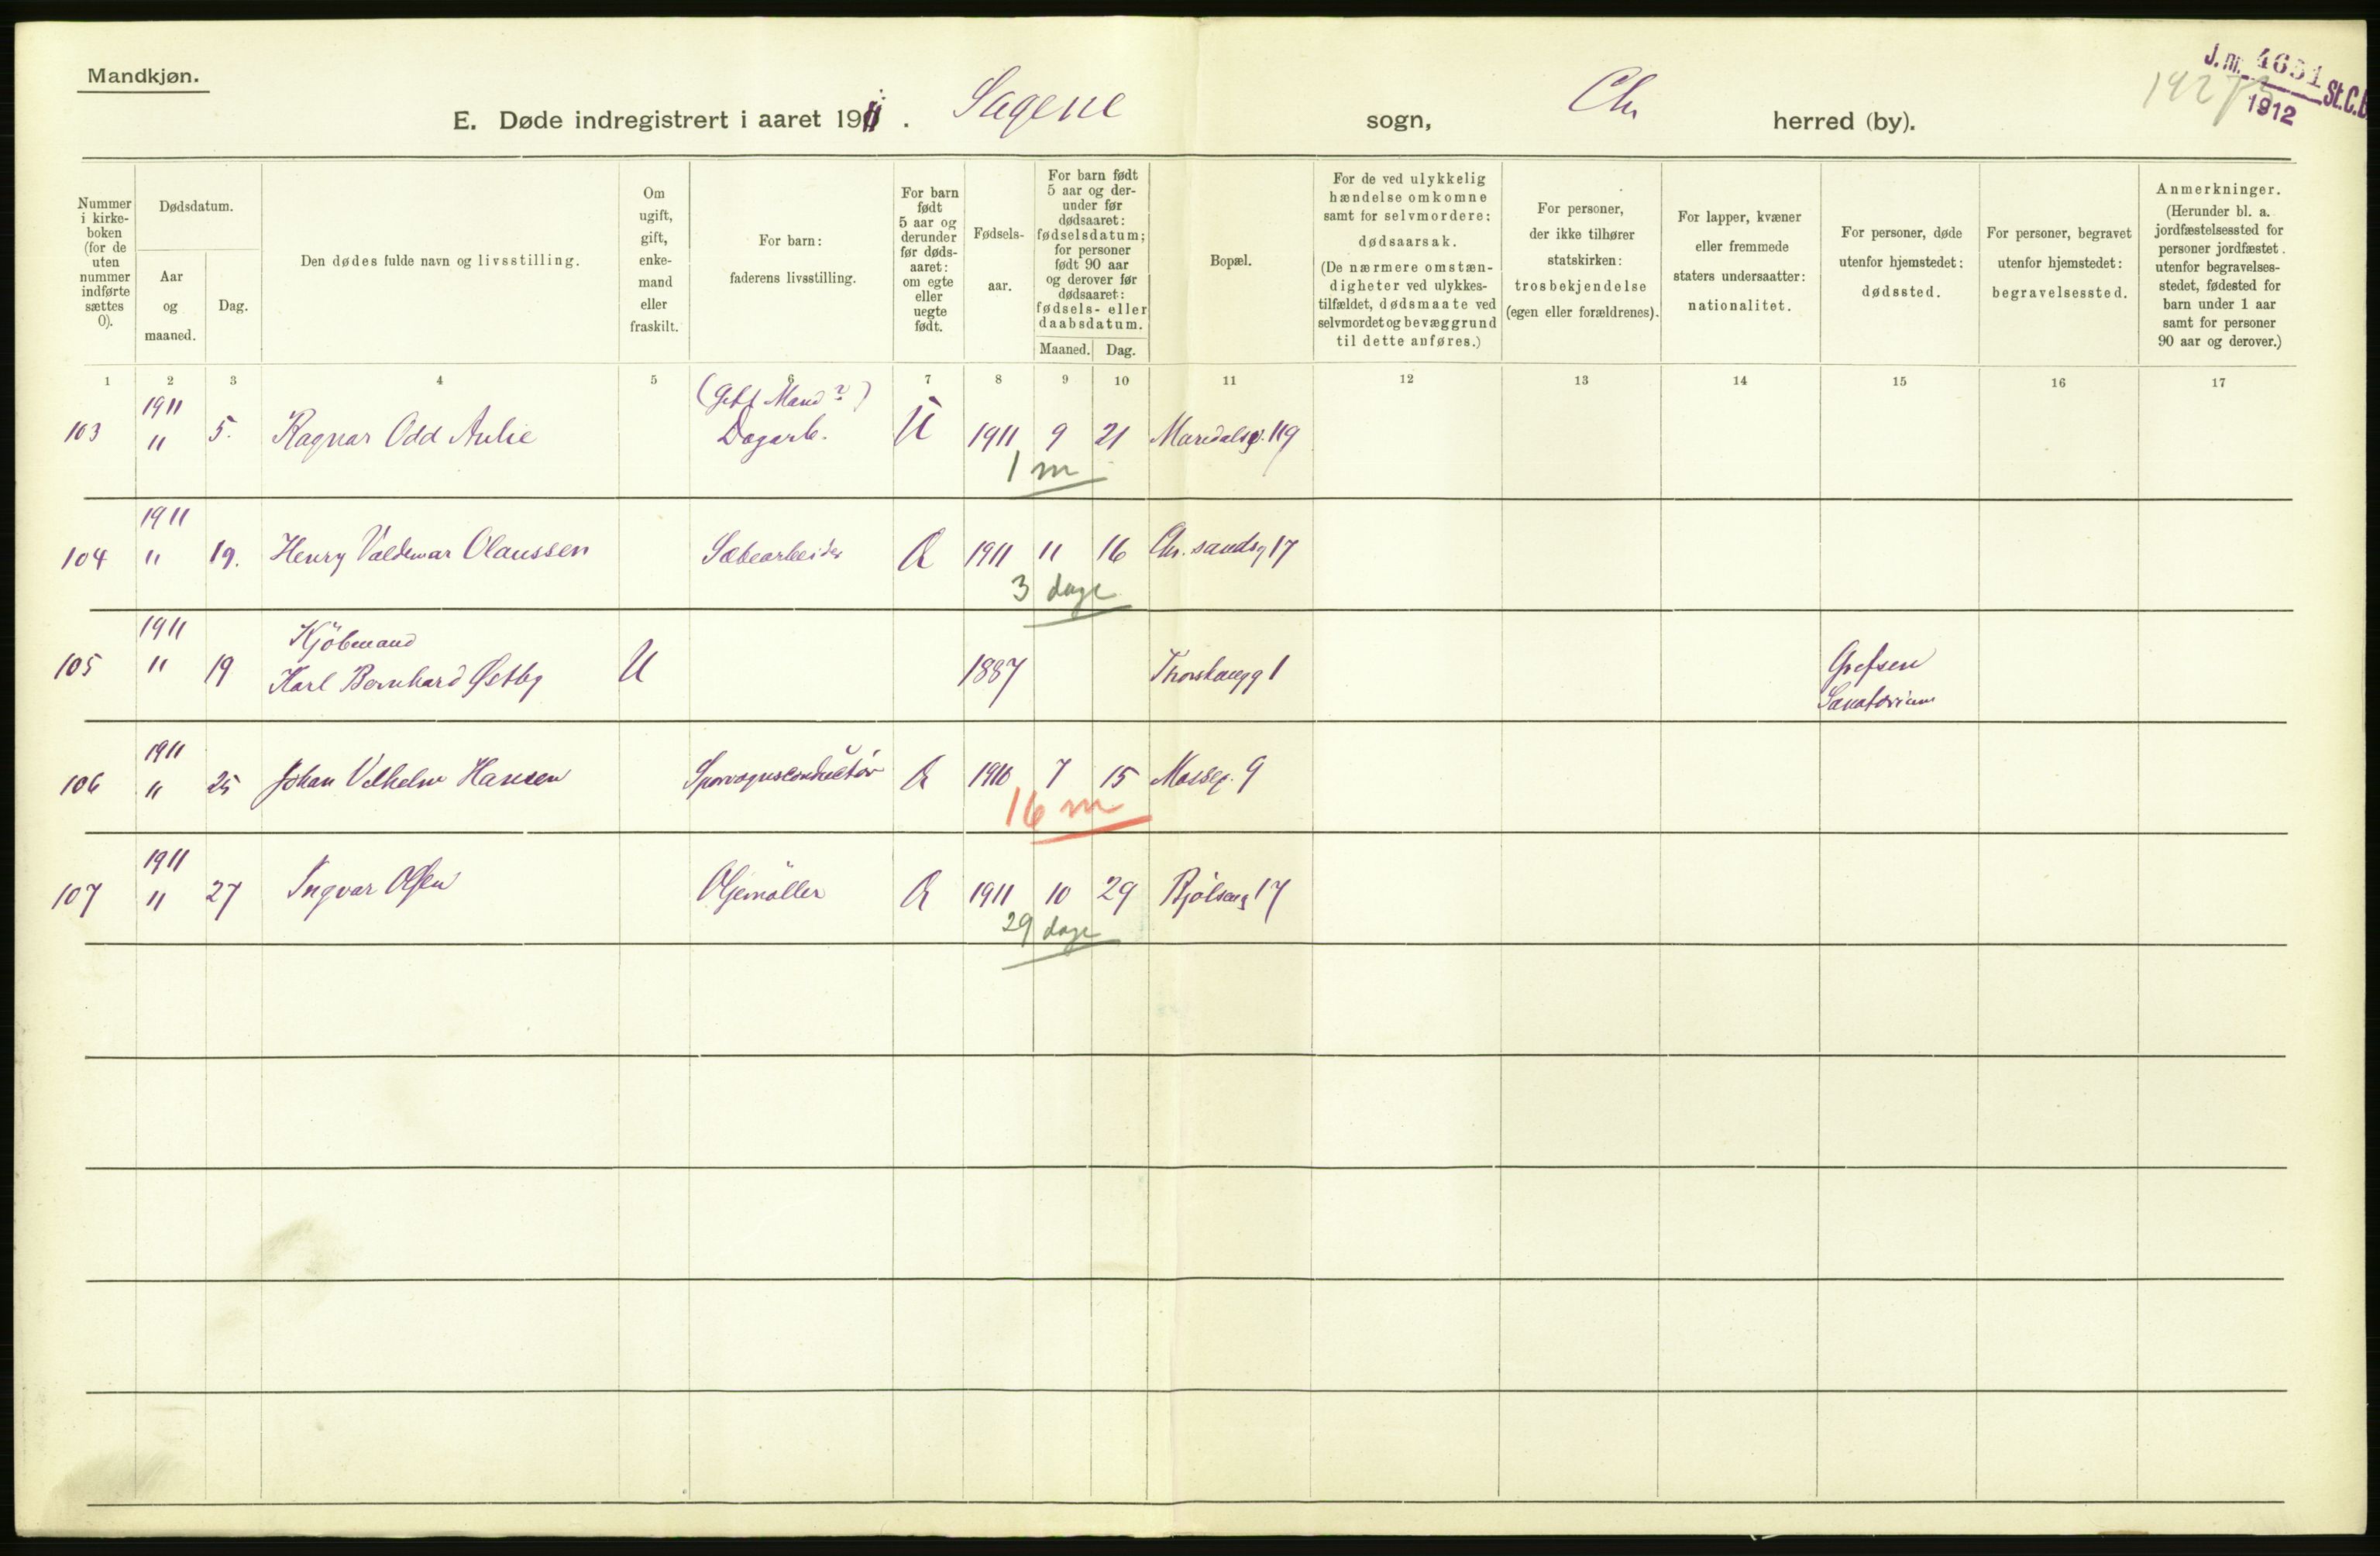 Mandkjøn.
J. nr. 4651 St.C.B.
1912
E. Døde indregistrert i aaret 1911. Sagene sogn, Chr herred (by).
Nummer i kirke-boken (for de uten nummer indførte sættes 0).
Dødsdatum.
Aar og maaned.
Dag.
Den dødes fulde navn og livsstilling.
Om ugift, gift, enke-mand eller fraskilt.
For barn: faderens livsstilling.
For barn født 5 aar og derunder før døds-aaret: om egte eller uegte født.
Fødsels-aar.
For barn født 5 aar og der-under før dødsaaret: fødselsdatum; for personer født 90 aar og derover før dødsaaret: fødsels- eller daabsdatum.
Maaned. Dag.
Bopæl.
For de ved ulykkelig hændelse omkomne samt for selvmordere: dødsaarsak. (De nærmere omstæn-digheter ved ulykkes-tilfældet, dødsmaate ved selvmordet og bevæggrund til dette anføres.)
For personer, der ikke tilhører statskirken: trosbekjendelse (egen eller forældrenes).
For lapper, kvæner eller fremmede staters undersaatter: nationalitet.
For personer, døde utenfor hjemstedet: dødssted.
For personer, begravet utenfor hjemstedet: begravelsessted.
Anmerkninger. (Herunder bl. a. jordfæstelsessted for personer jordfæstet utenfor begravelses-stedet, fødested for barn under 1 aar samt for personer 90 aar og derover.)
1 2 3 4 5 6 7 8 9 10 11 12 13 14 15 16 17
1911 (Gift Mand ?)
103 11 5. Ragnar Odd Aulie Dagarb. U 1911 9 21 Maridalsg. 119
1 m
1911
104 11 19. Henry Valdemar Olaussen Sæbearbeider E 1911 11 16 Chr. sandsg 17
3 dage
1911 Kjöbmand
105 11 19 Karl Bernhard Østby U 1887 1 Grefsen
Sanatorium
1911
106 11 25 Johan Vilhelm Hansen Sporvognsconductör E 1910 7 15 Mosseg. 9
16 m
1911
107 11 27 Ingvar Olsen Oljemöller E 1911 10 29 Bjölseng 17
29 dage